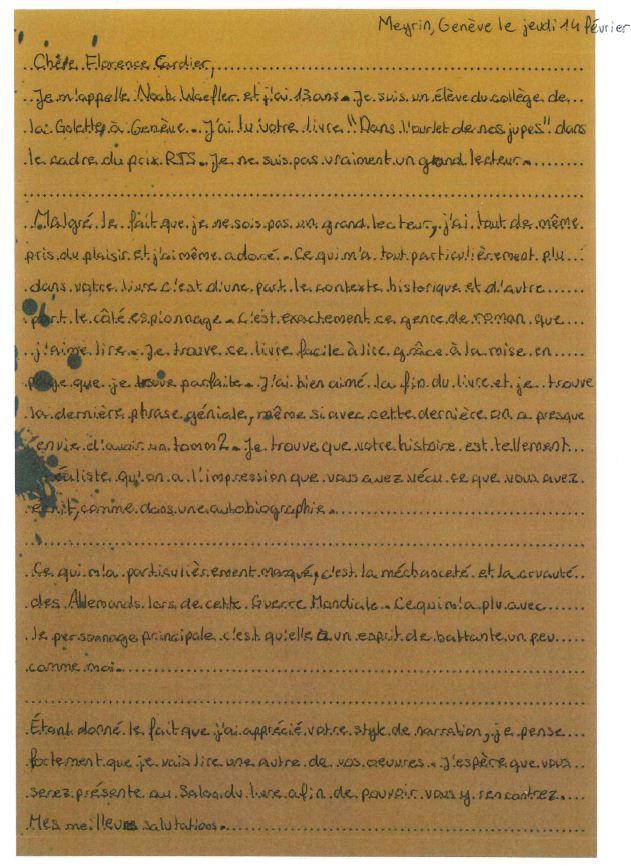 Meyrin, Genève le jeudi 14 février
Chère Florence Cardier,
Je m'appelle Noah Waefler et j'ai 13 ans. Je suis un élève du collège de
la Golette à Genève. J'ai lu votre livre "Dans l'ourlet de nos jupes" dans
le cadre du prix RTS. Je ne suis pas vraiment un grand lecteur.
Malgré le fait que je ne sois pas un grand lecteur, j'ai tout de même
pris du plaisir et j'ai même adoré. Ce qui m'a tout particulièrement plu
dans votre livre c'est d'une part le contexte historique et d'autre
part le côté espionnage. C'est exactement ce genre de roman que
j'aime lire. Je trouve ce livre facile à lire grâce à la mise en
page que je trouve parfaite. J'ai bien aimé la fin du livre et je trouve
la dernière phrase géniale, même si avec cette dernière on a presque
envie d'avoir un tomm 2. Je trouve que votre histoire est tellement
réaliste qu'on a l'impression que vous avez vécu ce que vous avez
écrit, comme dans une autobiographie.
Ce qui m'a particulièrement marqué, c'est la méchanceté et la cruauté
des Allemands lors de cette Guerre Mondiale. Ce qui m'a plu avec
le personnage principale c'est qu'elle a un esprit de battante un peu
comme moi.
Étant donné le fait que j'ai apprécié votre style de narration, je pense
fortement que je vais lire une autre de vos oeuvres. J'espère que vous
serez présente au Salon du livre afin de pouvoir vous y rencontrez.
Mes meilleures salutations.